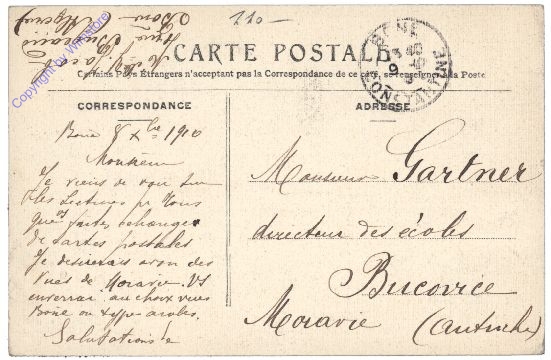 110-
CARTE POSTALE
Certains Pays Étrangers n'acceptant pas la Correspondance de ce côté, se renseigner à la Poste
BONE
CONSTANTINE
CORRESPONDANCE
ADRESSE
Bone 8 Xbre 1910
Monsieur
Je viens de voir sur
les lectures pr Vous
que vs faites échange
de cartes postales
Je désirerais avoir des
vues de Moravie. Vs
enverrai au choix vues
Bone ou types arabes.
Salutations
Monsieur Gartner
directeur des écoles
Bucovice
Moravie (Autriche)
Copyright by Wildstore